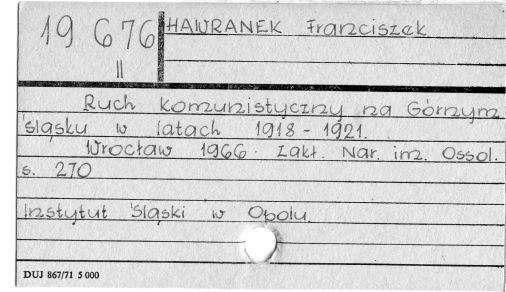 19 676
II
HAWRANEK Franciszek
Ruch komunistyczny na Górnym
Śląsku w latach 1918 - 1921.
Wrocław 1966. Zakł. Nar. im. Ossol.
s. 270
Instytut Śląski w Opolu.
DUJ 867/71 5 000